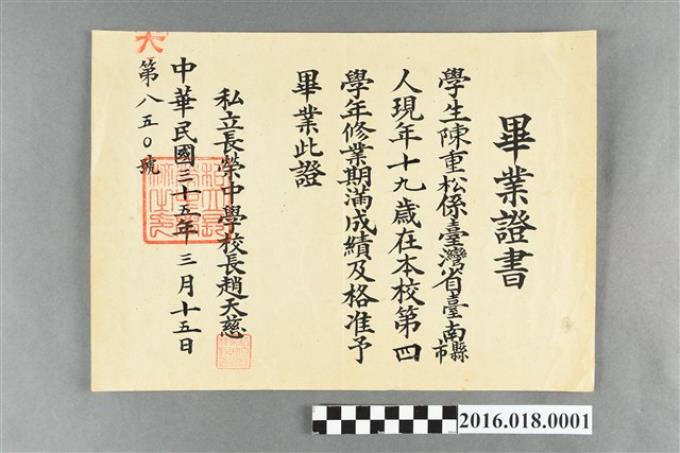 畢業證書
學生陳重松係臺灣省臺南縣市
人現年十九歲在本校第四
學年修業期滿成績及格准予
畢業此證
私立長榮中學校長趙天慈
中華民國三十五年三月十五日
第八五〇號
2016.018.0001